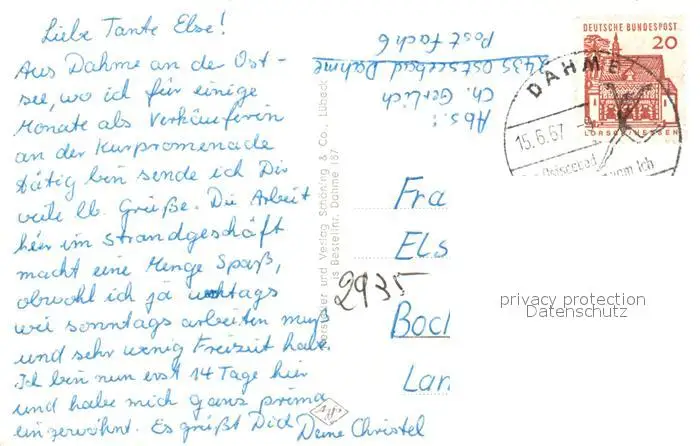 Liebe Tante Else!
Aus Dahme an der Ost-
see, wo ich für einige
Monate als Verkäuferin
an der Kurpromenade
tätig bin sende ich Dir
viele lb. Grüße. Die Arbeit
hier im Strandgeschäft
macht eine Menge Spaß,
obwohl ich ja wochtags
wie sonntags arbeiten muß
und sehr wenig Freizeit habe.
Ich bin nun erst 14 Tage hier
und habe mich ganz prima
eingewöhnt. Es grüßt Dich Deine Christel
Abs.:
Ch. Gerlich
2435 Ostseebad Dahme
Postfach 6
DEUTSCHE BUNDESPOST
20
LORSCH/HESSEN
DAHME
15.6.67
Ostseebad
Fra
Els
Boch
Lan
2935
und Verlag Schöning & Co., Lübeck
Bestellnr. Dahme 187
privacy protection
Datenschutz